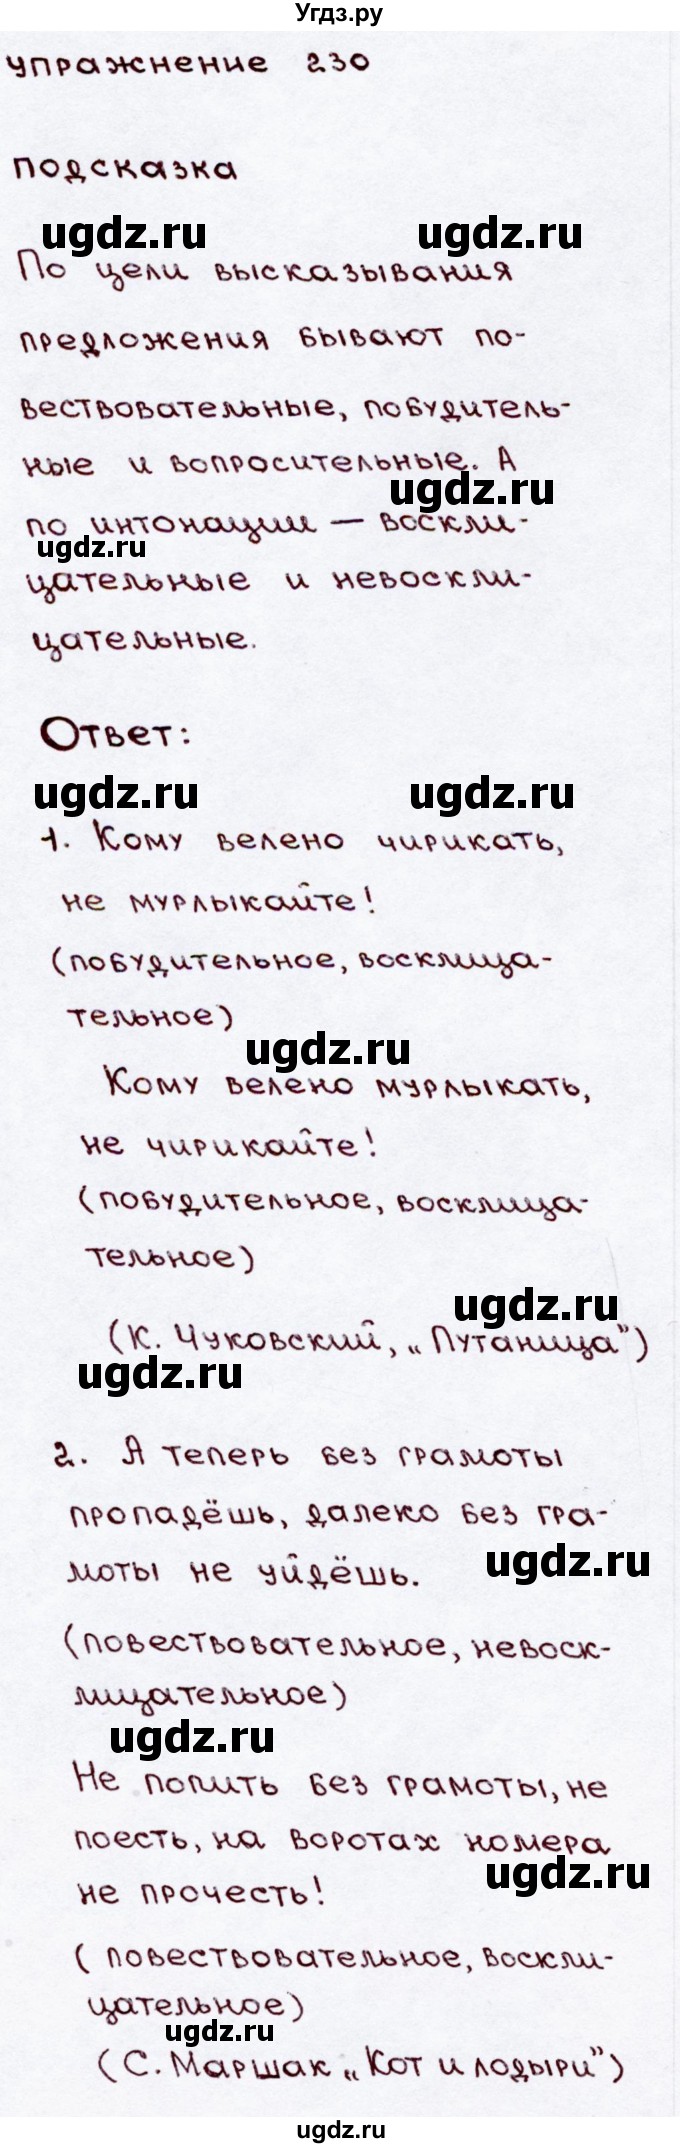 Угдз.ру
упражнение 230
подсказка
ugdz.ru ugdz.ru
По цели высказывания
предложения бывают по-
вествовательные, побудитель-
ные и вопросительные. А
ugdz.ru
по интонации — воскли-
ugdz.ru
цательные и невоскли-
цательные.
Ответ:
ugdz.ru ugdz.ru
1. Кому велено чирикать,
не мурлыкайте!
(побудительное, восклица-
тельное)
ugdz.ru
Кому велено мурлыкать,
не чирикайте!
(побудительное, восклица-
тельное)
ugdz.ru
(К. Чуковский, „Путаница")
ugdz.ru
2. А теперь без грамоты
пропадёшь, далеко без гра-
ugdz.ru
моты не уйдёшь.
(повествовательное, невоск-
лицательное)
ugdz.ru
Не попить без грамоты, не
поесть, на воротах номера
ugdz.ru
не прочесть!
(повествовательное, воскли-
цательное)
ugdz.ru
(С. Маршак „Кот и лодыри")
ugdz.ru